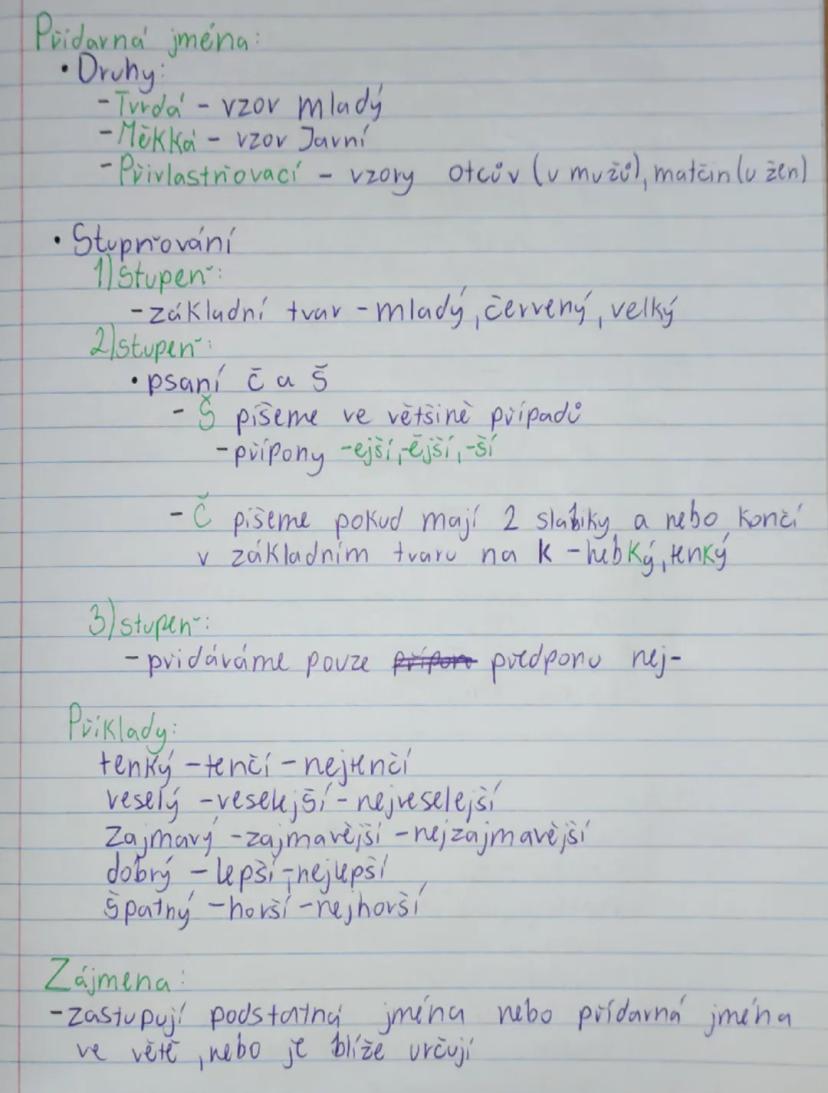 Přídavná jména:
• Druhy:
- Tvrdá - vzor mladý
- Měkká - vzor Jarní
- Přivlastňovací - vzory otcův (u mužů), matčin (u žen)
• Stupňování
1) Stupeň:
- základní tvar - mladý, červený, velký
2) stupeň:
• psaní č a š
- Š píšeme ve většině případů
- přípony -ejší, -ější, -ší
- Č píšeme pokud mají 2 slabiky a nebo končí
v základním tvaru na k - hebký, tenký
3) stupeň:
- přidáváme pouze předponu nej-
Příklady:
tenký - tenčí - nejtenčí
veselý - veselejší - nejveselejší
Zajmavý - zajmavější - nejzajmavější
dobrý - lepší - nejlepší
špatný - horší - nejhorší
Zájmena:
- zastupují podstatná jména nebo přídavná jména
ve větě, nebo je blíže určují